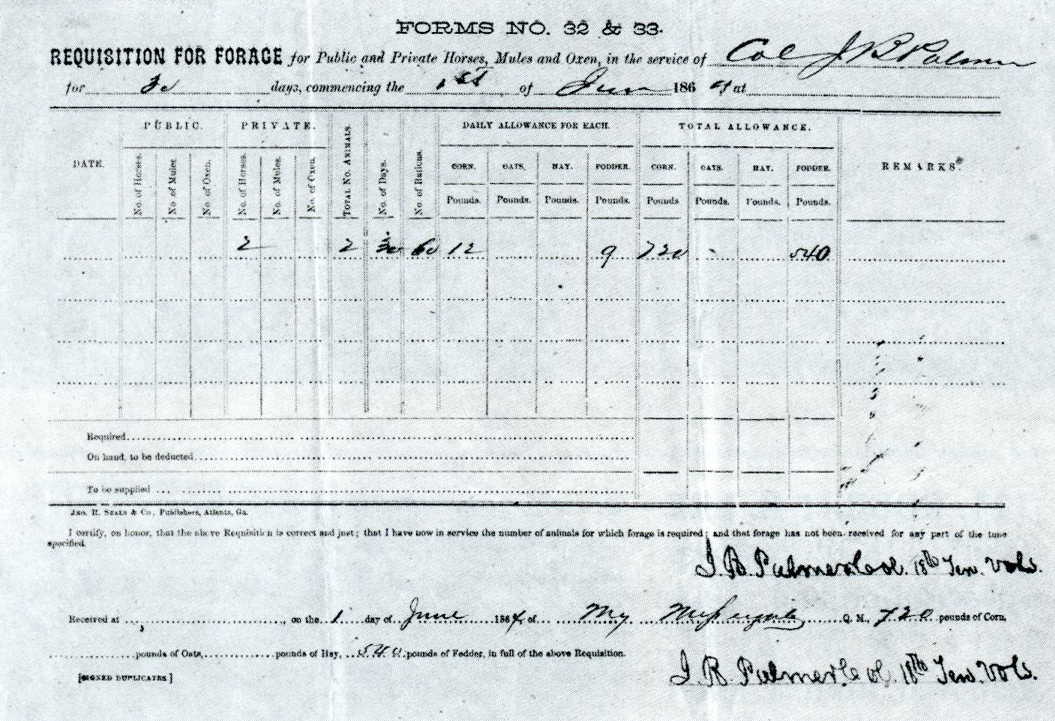 FORMS NO. 32 & 33.
REQUISITION FOR FORAGE for Public and Private Horses, Mules and Oxen, in the service of Col J B Palmer
for 30 days, commencing the 1st of June 1864 at
PUBLIC. PRIVATE. DAILY ALLOWANCE FOR EACH. TOTAL ALLOWANCE.
DATE. No. of Horses. No. of Mules. No. of Oxen. No. of Horses. No. of Mules. No. of Oxen. TOTAL No. ANIMALS. No. of Days. No. of Rations. CORN. OATS. HAY. FODDER. CORN. OATS. HAY. FODDER. REMARKS
Pounds. Pounds. Pounds. Pounds. Pounds Pounds. Pounds. Pounds.
2 2 30 60 12 9 720 - 540
Required
On hand, to be deducted
To be supplied
JNO. H. SEALS & CO., Publishers, Atlanta, Ga.
I certify, on honor, that the above Requisition is correct and just; that I have now in service the number of animals for which forage is required; and that forage has not been received for any part of the time
specified.
J. B. Palmer Col. 18th Ten. Vols.
Received at on the 1 day of June 1864, of My Q. M., 720 pounds of Corn,
pounds of Oats, pounds of Hay, 540 pounds of Fodder, in full of the above Requisition.
J. B. Palmer Col. 18th Ten. Vols.
[SIGNED DUPLICATES]